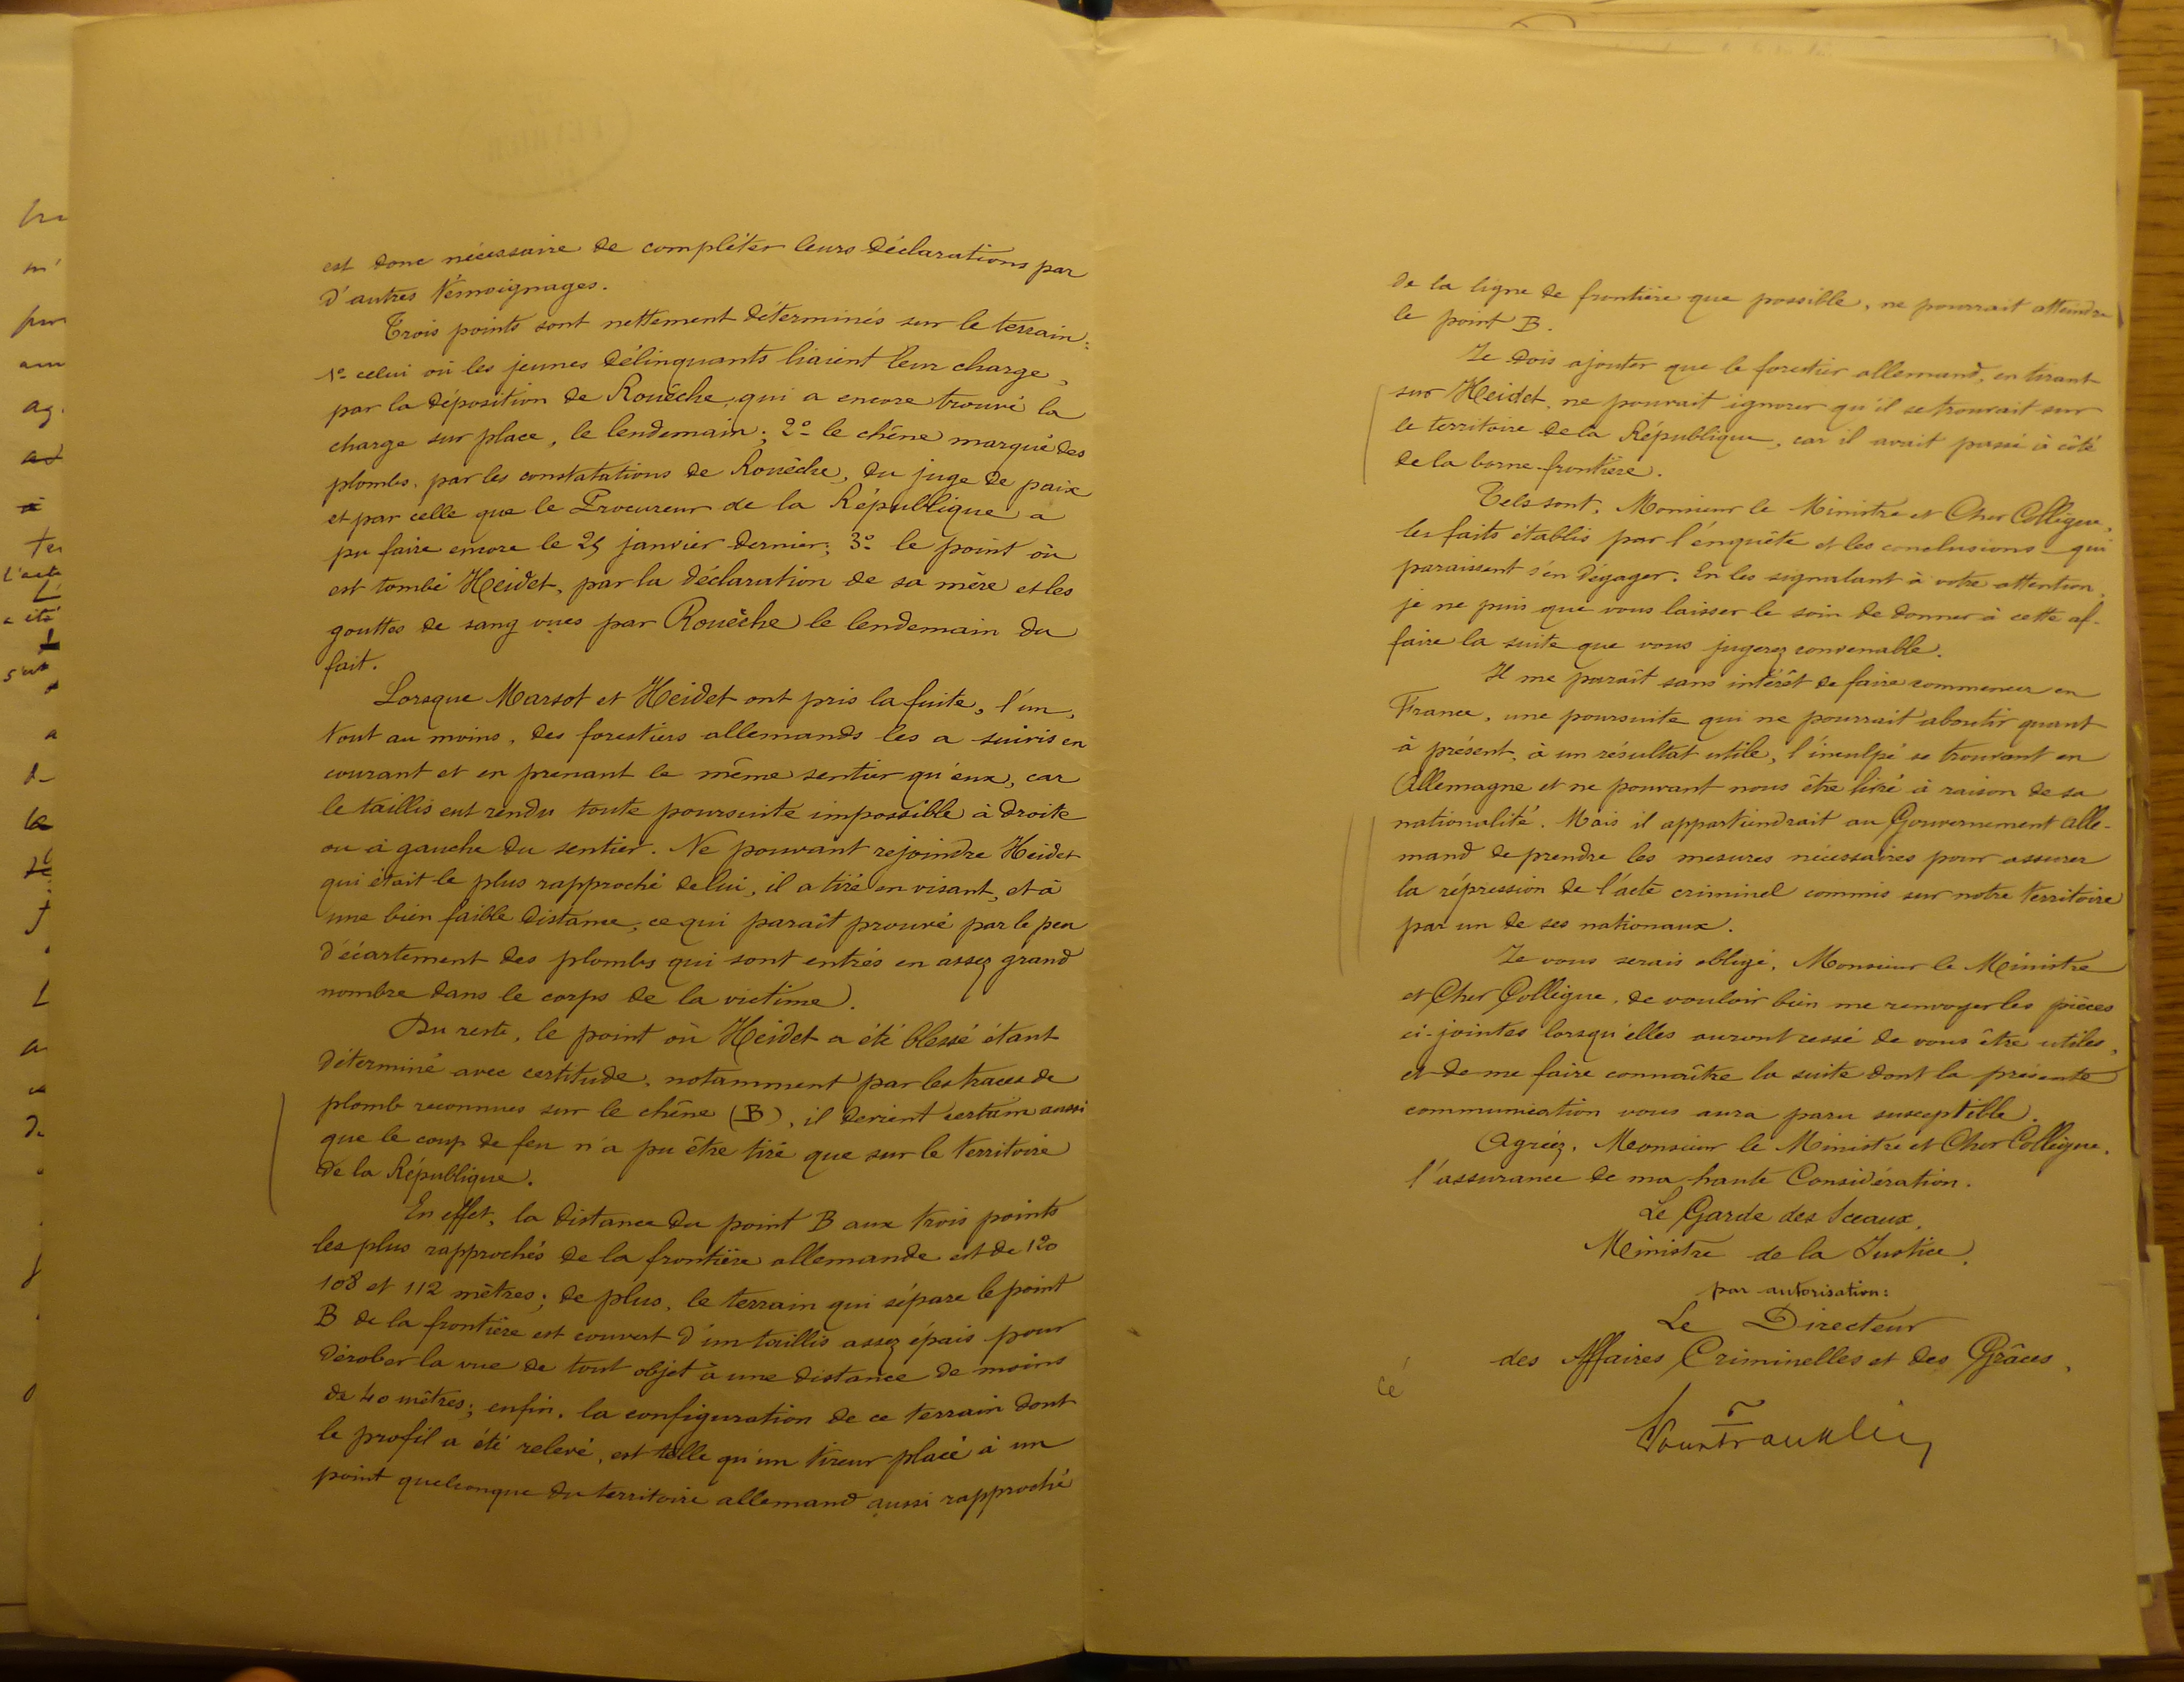 est donc nécessaire de compléter leurs déclarations par
d'autres témoignages.
Trois points sont nettement déterminés sur le terrain:
1º celui où les jeunes délinquants liaient leur charge,
par la déposition de Rouèche, qui a encore trouvé la
charge sur place, le lendemain; 2º le chêne marqué des
plombs, par les constatations de Rouèche, du juge de paix
et par celle que le Procureur de la République a
pu faire encore le 25 janvier dernier; 3º le point où
est tombé Heidet, par la déclaration de sa mère et les
gouttes de sang vues par Rouèche le lendemain du
fait.
Lorsque Marsot et Heidet ont pris la fuite, l'un,
tout au moins, des forestiers allemands les a suivis en
courant et en prenant le même sentier qu'eux, car
le taillis eut rendu toute poursuite impossible à droite
ou à gauche du sentier. Ne pouvant rejoindre Heidet
qui était le plus rapproché de lui, il a tiré en visant, et à
une bien faible distance, ce qui paraît prouvé par le peu
d'écartement des plombs qui sont entrés en assez grand
nombre dans le corps de la victime.
Du reste, le point où Heidet a été blessé étant
déterminé avec certitude, notamment par les traces de
plomb reconnues sur le chêne (B), il devient certain aussi
que le coup de feu n'a pu être tiré que sur le territoire
de la République.
En effet, la distance du point B aux trois points
les plus rapprochés de la frontière allemande est de 120
108 et 112 mètres; de plus, le terrain qui sépare le point
B de la frontière est couvert d'un taillis assez épais pour
dérober la vue de tout objet à une distance de moins
de 40 mètres; enfin, la configuration de ce terrain dont
le profil a été relevé, est telle qu'un tireur placé à un
point quelconque du territoire allemand aussi rapproché
de la ligne de frontière que possible, ne pourrait atteindre
le point B.
Je dois ajouter que le forestier allemand, en tirant
sur Heidet, ne pouvait ignorer qu'il se trouvait sur
le territoire de la République, car il avait passé à côté
de la borne frontière.
Tels sont, Monsieur le Ministre et Cher Collègue,
les faits établis par l'enquête et les conclusions qui
paraissent s'en dégager. En les signalant à votre attention,
je ne puis que vous laisser le soin de donner à cette af-
faire la suite que vous jugerez convenable.
Il me paraît sans intérêt de faire commencer en
France, une poursuite qui ne pourrait aboutir quant
à présent, à un résultat utile, l'inculpé se trouvant en
Allemagne et ne pouvant nous être livré à raison de sa
nationalité. Mais il appartiendrait au Gouvernement alle-
mand de prendre les mesures nécessaires pour assurer
la répression de l'acte criminel commis sur notre territoire
par un de ses nationaux.
Je vous serais obligé, Monsieur le Ministre
et Cher Collègue, de vouloir bien me renvoyer les pièces
ci-jointes lorsqu'elles auront cessé de vous être utiles,
et de me faire connaître la suite dont la présente
communication vous aura paru susceptible.
Agréez, Monsieur le Ministre et Cher Collègue,
l'assurance de ma haute Considération.
Le Garde des Sceaux,
Ministre de la Justice,
par autorisation:
Le Directeur
des Affaires Criminelles et des Grâces,
ce